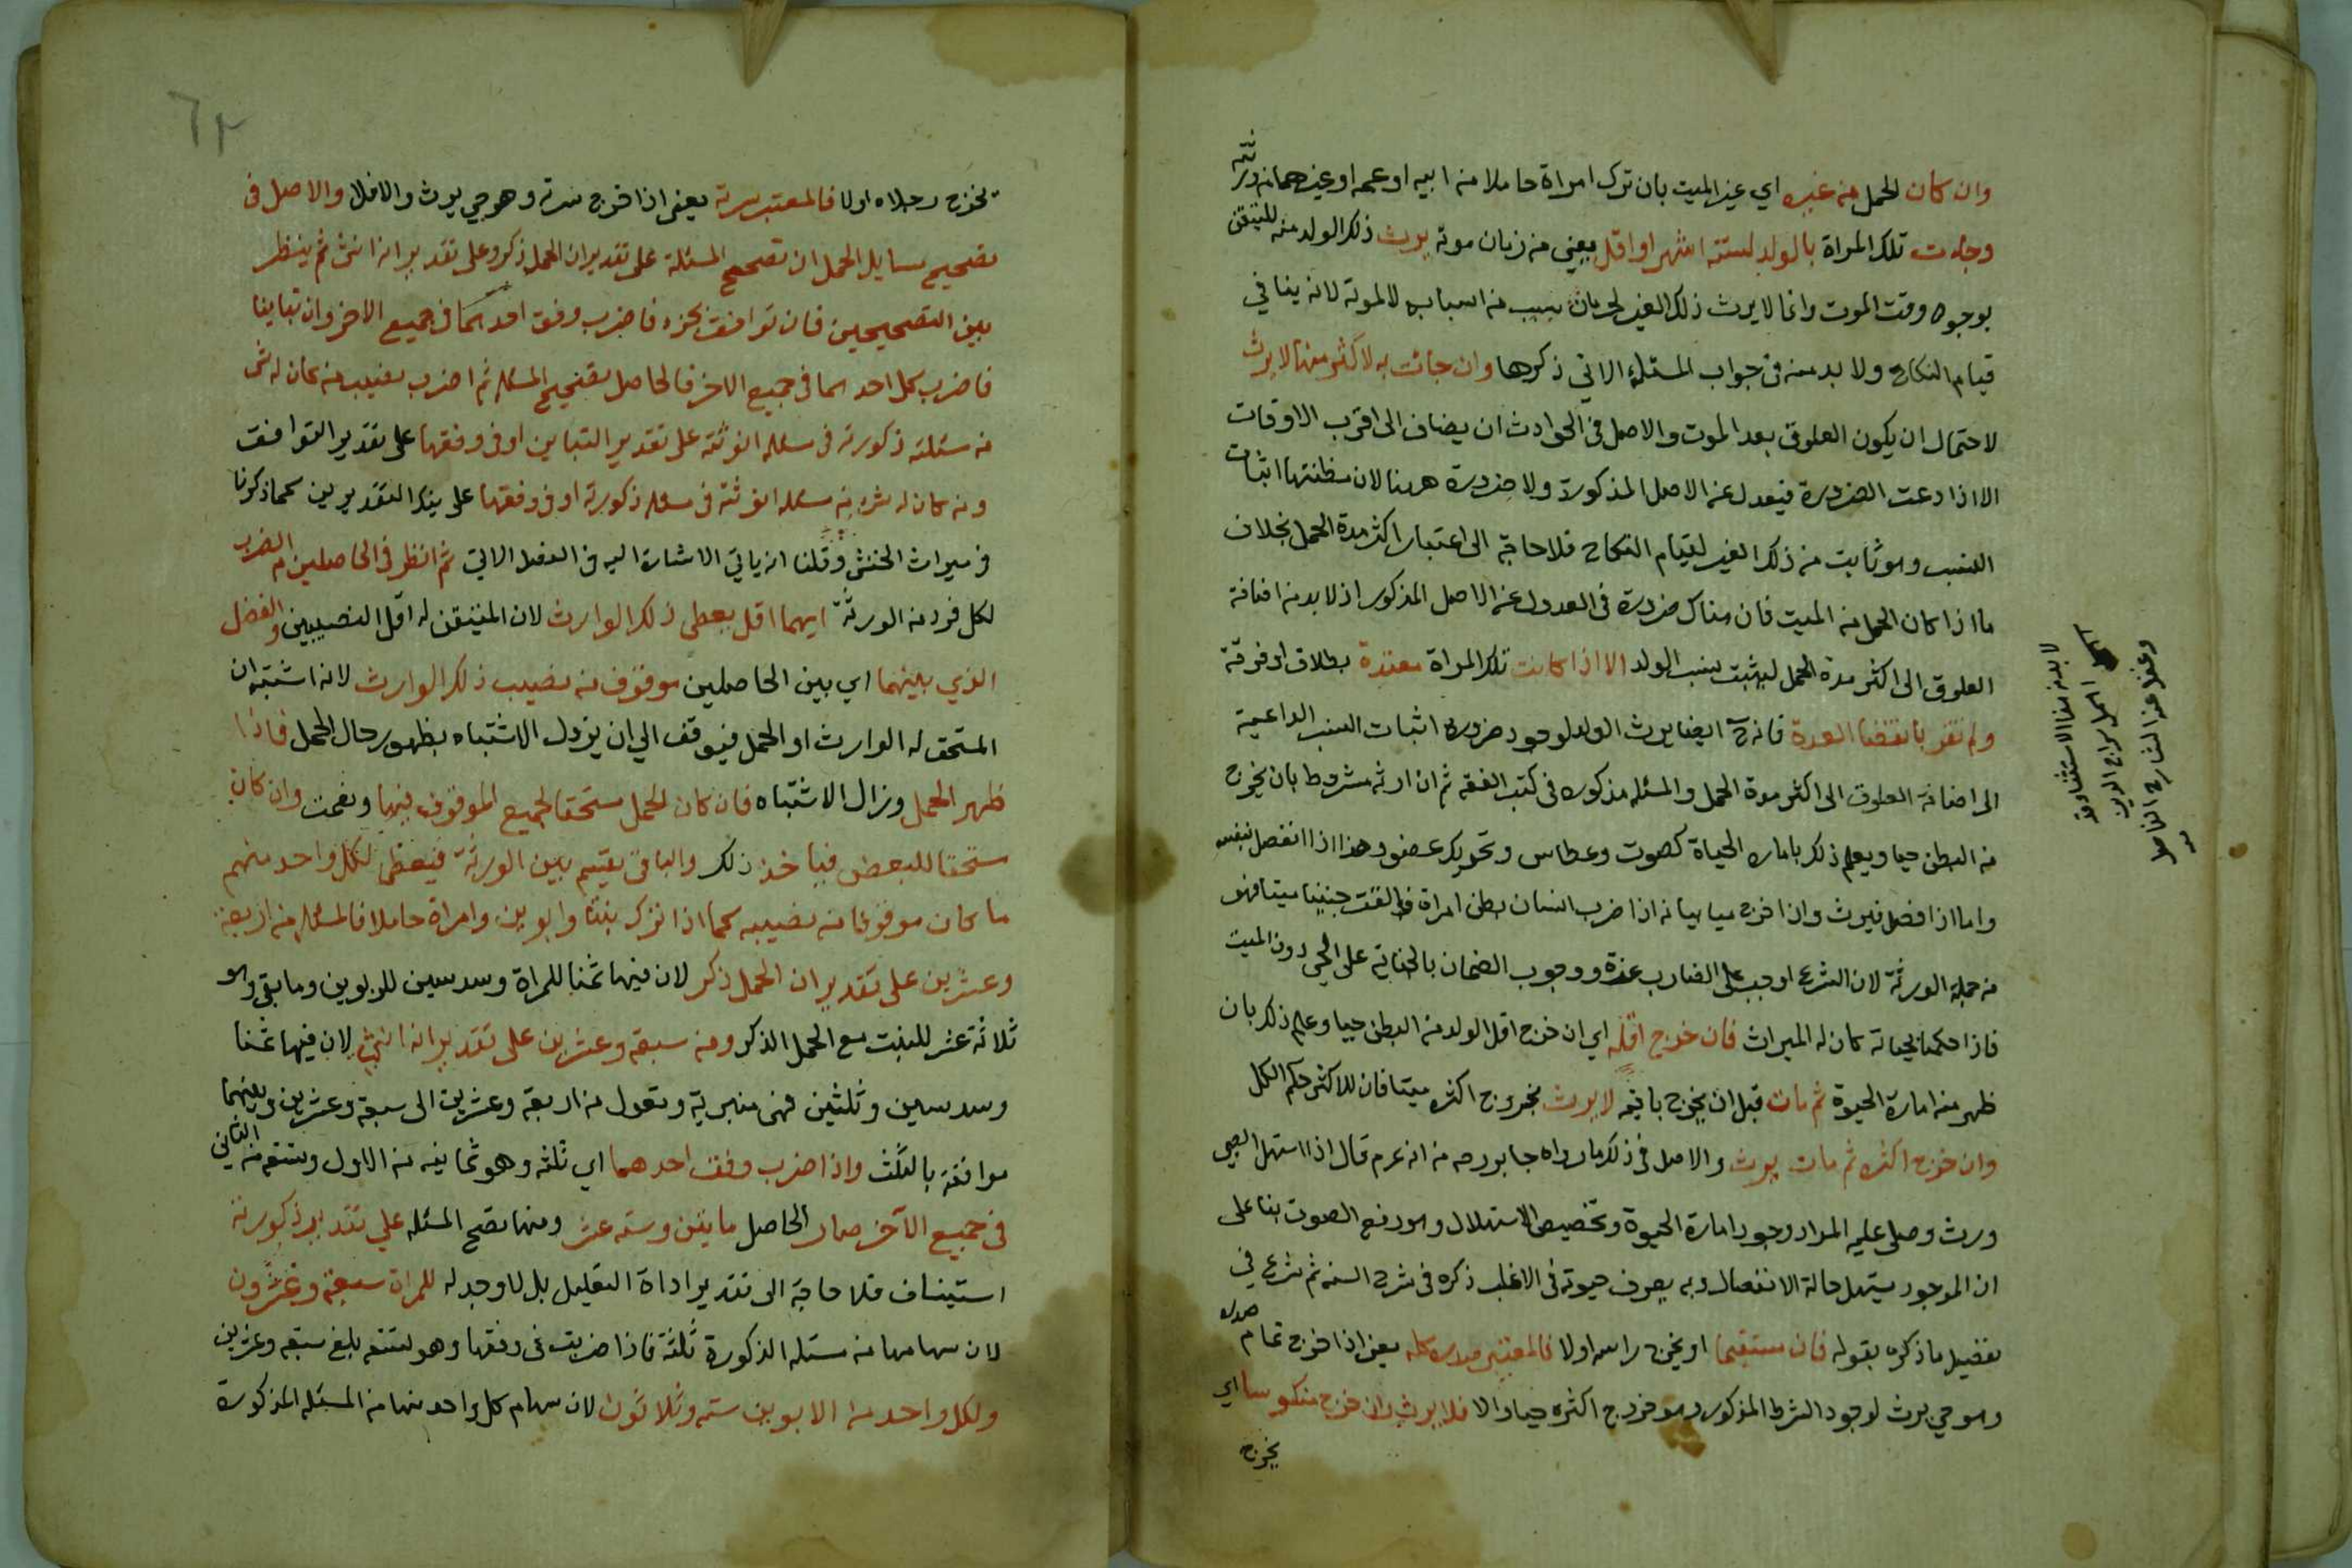 وان كان الحمل من غيره اي غير الميت بان ترك امراة حاملا من ابيه او عمه او غيرهما من ورثته
وجاءت تلك المراة بالولد لستة اشهر او اقل يعني من زمان موته يرث ذلك الولد منه للتيقن
بوجوده وقت الموت وانما لا يرث ذلك الغير لحرمان بسبب من اسبابه لا لموته لانه ينافي
قيام النكاح ولا بد منه في جواب المسئلة الاتي ذكرها وان جائت به لاكثر منها لا يرث
لاحتمال ان يكون العلوق بعد الموت والاصل في الحوادث ان يضاف الى اقرب الاوقات
الا اذا دعت الضرورة فيعدل عن الاصل المذكور ولا ضرورة ههنا لان مظنتها اثبات
النسب وهو ثابت من ذلك الغير لقيام النكاح فلا حاجة الى اعتبار اكثر مدة الحمل بخلاف
ما اذا كان الحمل من الميت فان هناك ضرورة في العدول عن الاصل المذكور اذ لا بد من اضافة
العلوق الى اكثر مدة الحمل ليثبت نسب الولد الا اذا كانت تلك المراة معتدة بطلاق او فرقة
ولم تقر بانقضا العدة فانه ح ايضا يرث الولد لوجود ضرورة اثبات النسب الداعية
الى اضافة العلوق الى اكثر مدة الحمل والمسئلة مذكوره في كتب الفقه ثم ان ارثه مشروط بان يخرج
من البطن حيا ويعلم ذلك بامارة الحياة كصوت وعطاس وتحريك عضو وهذا اذا انفصل بنفسه
واما اذا فصل فيرث وان اخرج ميتا بيانه اذا ضرب انسان بطن امراة فالقت جنينا ميتا فهو
من جملة الورثة لان الشرع اوجب على الضارب غرة ووجوب الضمان بالجناية على الحي دون الميت
فاذا حكمنا بحياته كان له الميراث فان خرج اقله اي ان خرج اقل الولد من البطن حيا وعلم ذلك بان
ظهر منه امارة الحيوة ثم مات قبل ان يخرج باقيه لا يرث بخروج اكثره ميتا فان للاكثر حكم الكل
وان خرج اكثره ثم مات يرث والاصل في ذلك ما رواه جابر رضه من انه عرم قال اذا استهل الصبي
ورث وصلى عليه المراد وجود امارة الحيوة وتخصيص الاستهلال وهو رفع الصوت بنا على
ان الموجود يستهل حالة الانفصال وبه يعرف حيوته في الاغلب ذكره في شرح السنه ثم شرع في
تفصيل ما ذكره بقوله فان مستقيما او يخرج راسه اولا فالمعتبر صدره كله يعني اذا خرج تمام صدره
وهو حي يرث لوجود الشرط المذكور وهو خروج اكثره حيا والا فلا يرث وان خرج منكوسا اي
يخرج
لا بد من هذا الاستثنا وقد
اهمل سراج الدين
وغفل عنه الشارح الفاضل
٦٢
يخرج رجلاه اولا فالمعتبر سرته يعني اذا خرج سرته وهو حي يرث والا فلا والاصل في
تصحيح مسايل الحمل ان تصحح المسئلة على تقدير ان الحمل ذكر وعلى تقدير انه انثى ثم ينظر
بين التصحيحين فان توافقت بجزء فاضرب وفق احدهما في جميع الاخر وان تباينا
فاضرب كل احدهما في جميع الاخر فالحاصل تصحيح المسئله ثم اضرب نصيب من كان له شى
من مسئلة ذكورته في مسئله انوثته على تقدير التباين او في وفقها على تقدير التوافق
ومن كان له شى من مسئله انوثته في مسئله ذكورته او في وفقها على هذا التقديرين كما ذكرنا
في ميراث الخنثى وقلنا انه ياتي الاشارة اليه في الفصل الاتي ثم انظر في الحاصلين من الضرب
لكل فرد من الورثة ايهما اقل يعطى ذلك الوارث لان المتيقن له اقل النصيبين والفضل
الذي بينهما اي بين الحاصلين موقوف من نصيب ذلك الوارث لانه اشتبه ان
المستحق له الوارث او الحمل فيوقف الى ان يزول الاشتباه بظهور حال الحمل فاذا
ظهر الحمل وزال الاشتباه فان كان الحمل مستحقا لجميع الموقوف فبها ونعمت وان كان
مستحقا للبعض فياخذ ذلك والباقي يقسم بين الورثة فيعطى لكل واحد منهم
ما كان موقوفا من نصيبه كما اذا ترك بنتا وابوين وامراة حاملا فالمسئلة من اربعة
وعشرين على تقدير ان الحمل ذكر لان فيها ثمنا للمراة وسدسين للابوين وما بقي وهو
ثلاثة عشر للبنت مع الحمل الذكر ومن سبعة وعشرين على تقدير انه انثى لان فيها ثمنا
وسدسين وثلثين فهي منبرية وتعول من اربعة وعشرين الى سبعة وعشرين وبينهما
موافقة بالثلث واذا ضرب وفق احدهما اي ثلثه وهو ثمانيه من الاول وتسعه من الثاني
في جميع الآخر صار الحاصل مايتين وسته عشر ومنها تصح المسئله على تقدير ذكورته
استيناف فلا حاجة الى تقدير اداة التعليل بل لا وجه له للمراة سبعة وعشرون
لان سهامها من مسئله الذكورة ثلثة فاذا ضربت في وفقها وهو تسعه بلغ سبعه وعشرين
ولكل واحد من الابوين سته وثلاثون لان سهام كل واحد منها من المسئله المذكورة